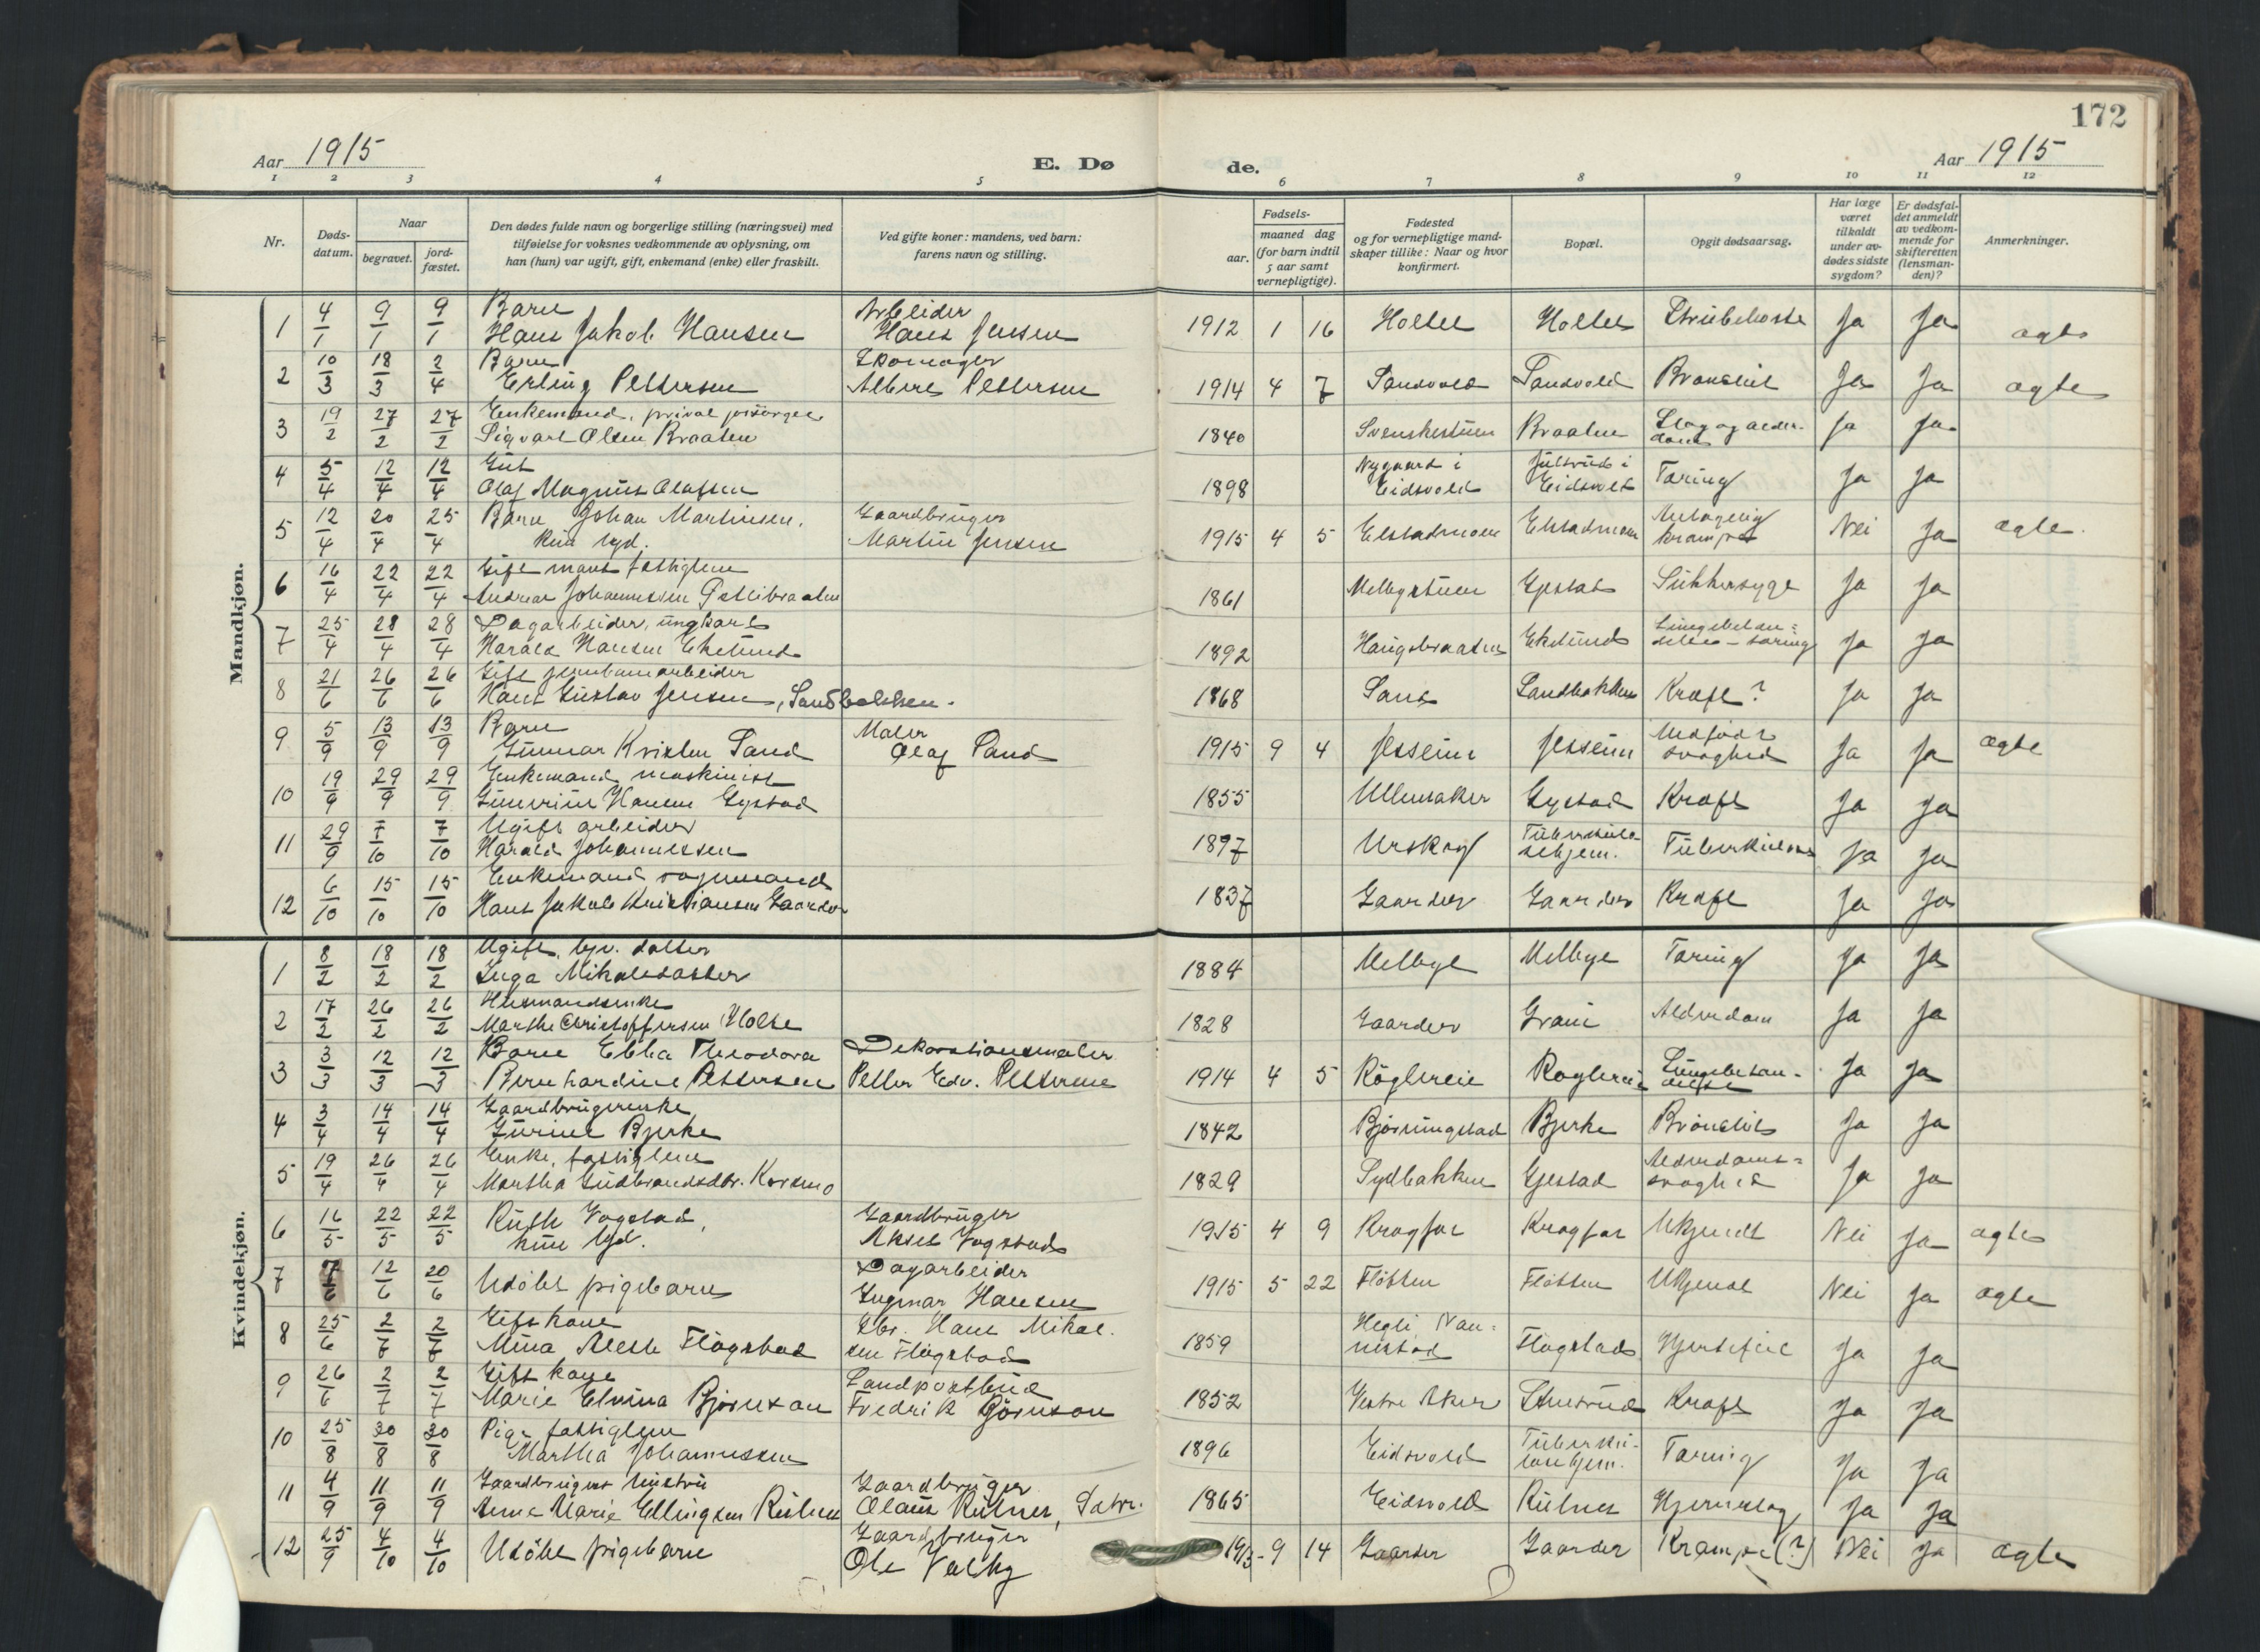 172
Aar 1915
E. Dø
de.
Aar 1915
1 2 3 4 5 6 7 8 9 10 11 12
Nr.
Døds-
datum.
Naar
begravet.
jord-
fæstet.
Den dødes fulde navn og borgerlige stilling (næringsvei) med
tilføielse for voksnes vedkommende av oplysning, om
han (hun) var ugift, gift, enkemand (enke) eller fraskilt.
Ved gifte koner: mandens, ved barn:
farens navn og stilling.
Fødsels-
aar.
maaned dag
(for barn indtil
5 aar samt
vernepligtige).
Fødested
og for vernepligtige mand-
skaper tillike: Naar og hvor
konfirmert.
Bopæl.
Opgit dødsaarsag.
Har læge
været
tilkaldt
under av-
dødes sidste
sygdom?
Er dødsfal-
det anmeldt
av vedkom-
mende for
skifteretten
(lensman-
den)?
Anmerkninger.
Mandkjøn.
1 4/1 9/1 9/1 Barn Arbeider
Hans Jakob Hansen Hans Jensen 1912 1 16 Holter Holter Strubehoste Ja Ja ægte
2 10/3 18/3 2/4 Barn Skomager
Erling Pettersen Albert Pettersen 1914 4 7 Sandvold Sandvold Bronchit Ja Ja ægte
3 19/2 27/2 27/2 Enkemand, privat forsørget
Sigvart Olsen Braaten 1840 Svenskestuen Braaten Slag og alder-
dom Ja Ja
4 5/4 12/4 12/4 Gut
Olaf Magnus Olafsen 1898 Nygaard i
Eidsvold Julsrud i
Eidsvold Tæring Ja Ja
5 12/4 20/4 25/4 Barn Johan Martinsen, Gaardbruger
Martin Jensen 1915 4 5 Elstadmoen Elstadmoen Antagelig
krampe Nei Ja ægte.
6 16/4 22/4 22/4 Gift mand fattiglem
Andreas Johannessen 1861 Melbystuen Gystad Sukkersyge Ja Ja
7 25/4 28/4 28/4 Dagarbeider, ungkarl
Harald Hansen Ekelund 1892 Haugsbraaten Ekelund Lungebetæn-
delse - tæring Ja Ja
8 21/6 26/6 26/6 Gift jernbanearbeider
Hans Gustav Jensen, Sandbakken. 1868 Sand Sandbakken Kræft? Ja Ja
9 5/9 13/9 13/9 Barn Maler
Gunnar Kristen Sand Olaf Sand 1915 9 4 Jesseim Jesseim Medfødt
svaghed Ja Ja ægte
10 19/9 29/9 29/9 Enkemand maskinist
Hansen Gystad 1855 Ullensaker Gystad Kræft Ja Ja
11 29/9 7/10 7/10 Ugift arbeider
Harald Johannessen 1897 Urskog Tuberkulo-
sehjem. Tuberkulose Ja Ja
12 6/10 15/10 15/10 Enkemand vognmand
Hans Jakob Kristiansen Gaarder 1837 Gaarder Gaarder Kræft Ja Ja
Kvindekjøn.
1 8/2 18/2 18/2 Ugift, datter
Inga Mikalsdatter 1884 Melbye Melbye Tæring Ja Ja
2 17/2 26/2 26/2 Husmandsenke
Marthe Christoffersen Holte 1828 Gaarder Alderdom Ja Ja
3 3/3 12/3 12/3 Barn Ebba Theodora Dekorationsmaler
Bernhardine Pettersen Petter Edv. Pettersen 1914 4 5 Røglereie Røglereie Lungebetæn-
delse Ja Ja
4 3/4 14/4 14/4 Gaardbrugerenke
Gurine Bjerke 1842 Bjørningstad Bjerke Bronchit Ja Ja
5 19/4 26/4 26/4 Enke, fattiglem
Martha Gudbrandsdtr. Korsmo 1829 Sydbakken Gystad Alderdoms-
svaghed Ja Ja
6 16/5 22/5 22/5 Ruth Vogstad, Gaardbruger
Aksel Vogstad 1915 4 9 Krogfar Krogfar Ukjendt Nei Ja ægte
7 7/6 12/6 20/6 Udøbt pigebarn Dagarbeider
Ingmar Hansen 1915 5 22 Fløtten Fløtten Ukjendt Nei Ja ægte
8 25/6 2/7 2/7 Gift kone Gbr. Hans Mikal-
Mina Flagstad sen Flagstad 1859 Hegli Nan-
nestad Flagstad Hjertefeil Ja Ja
9 26/6 2/7 2/7 Gift kone Landpostbud
Marie Elvina Bjørnson Fredrik Bjørnson 1852 Vestre Aker Kræft Ja Ja
10 25/8 30/8 30/8 Pige fattiglem
Martha Johannessen 1896 Eidsvold Tuberku-
losehjem. Tæring Ja Ja
11 4/9 11/9 11/9 Gaardbrugers hustru Gaardbruger
Anne Marie Ellingsen Rulnes Olaus Rulnes, 1865 Eidsvold Rulnes Hjerneslag Ja Ja
12 25/9 4/10 4/10 Udøbt pigebarn Gaardbruger
Ole Valby 1915 9 14 Gaarder Gaarder Krampe (?) Nei Ja ægte